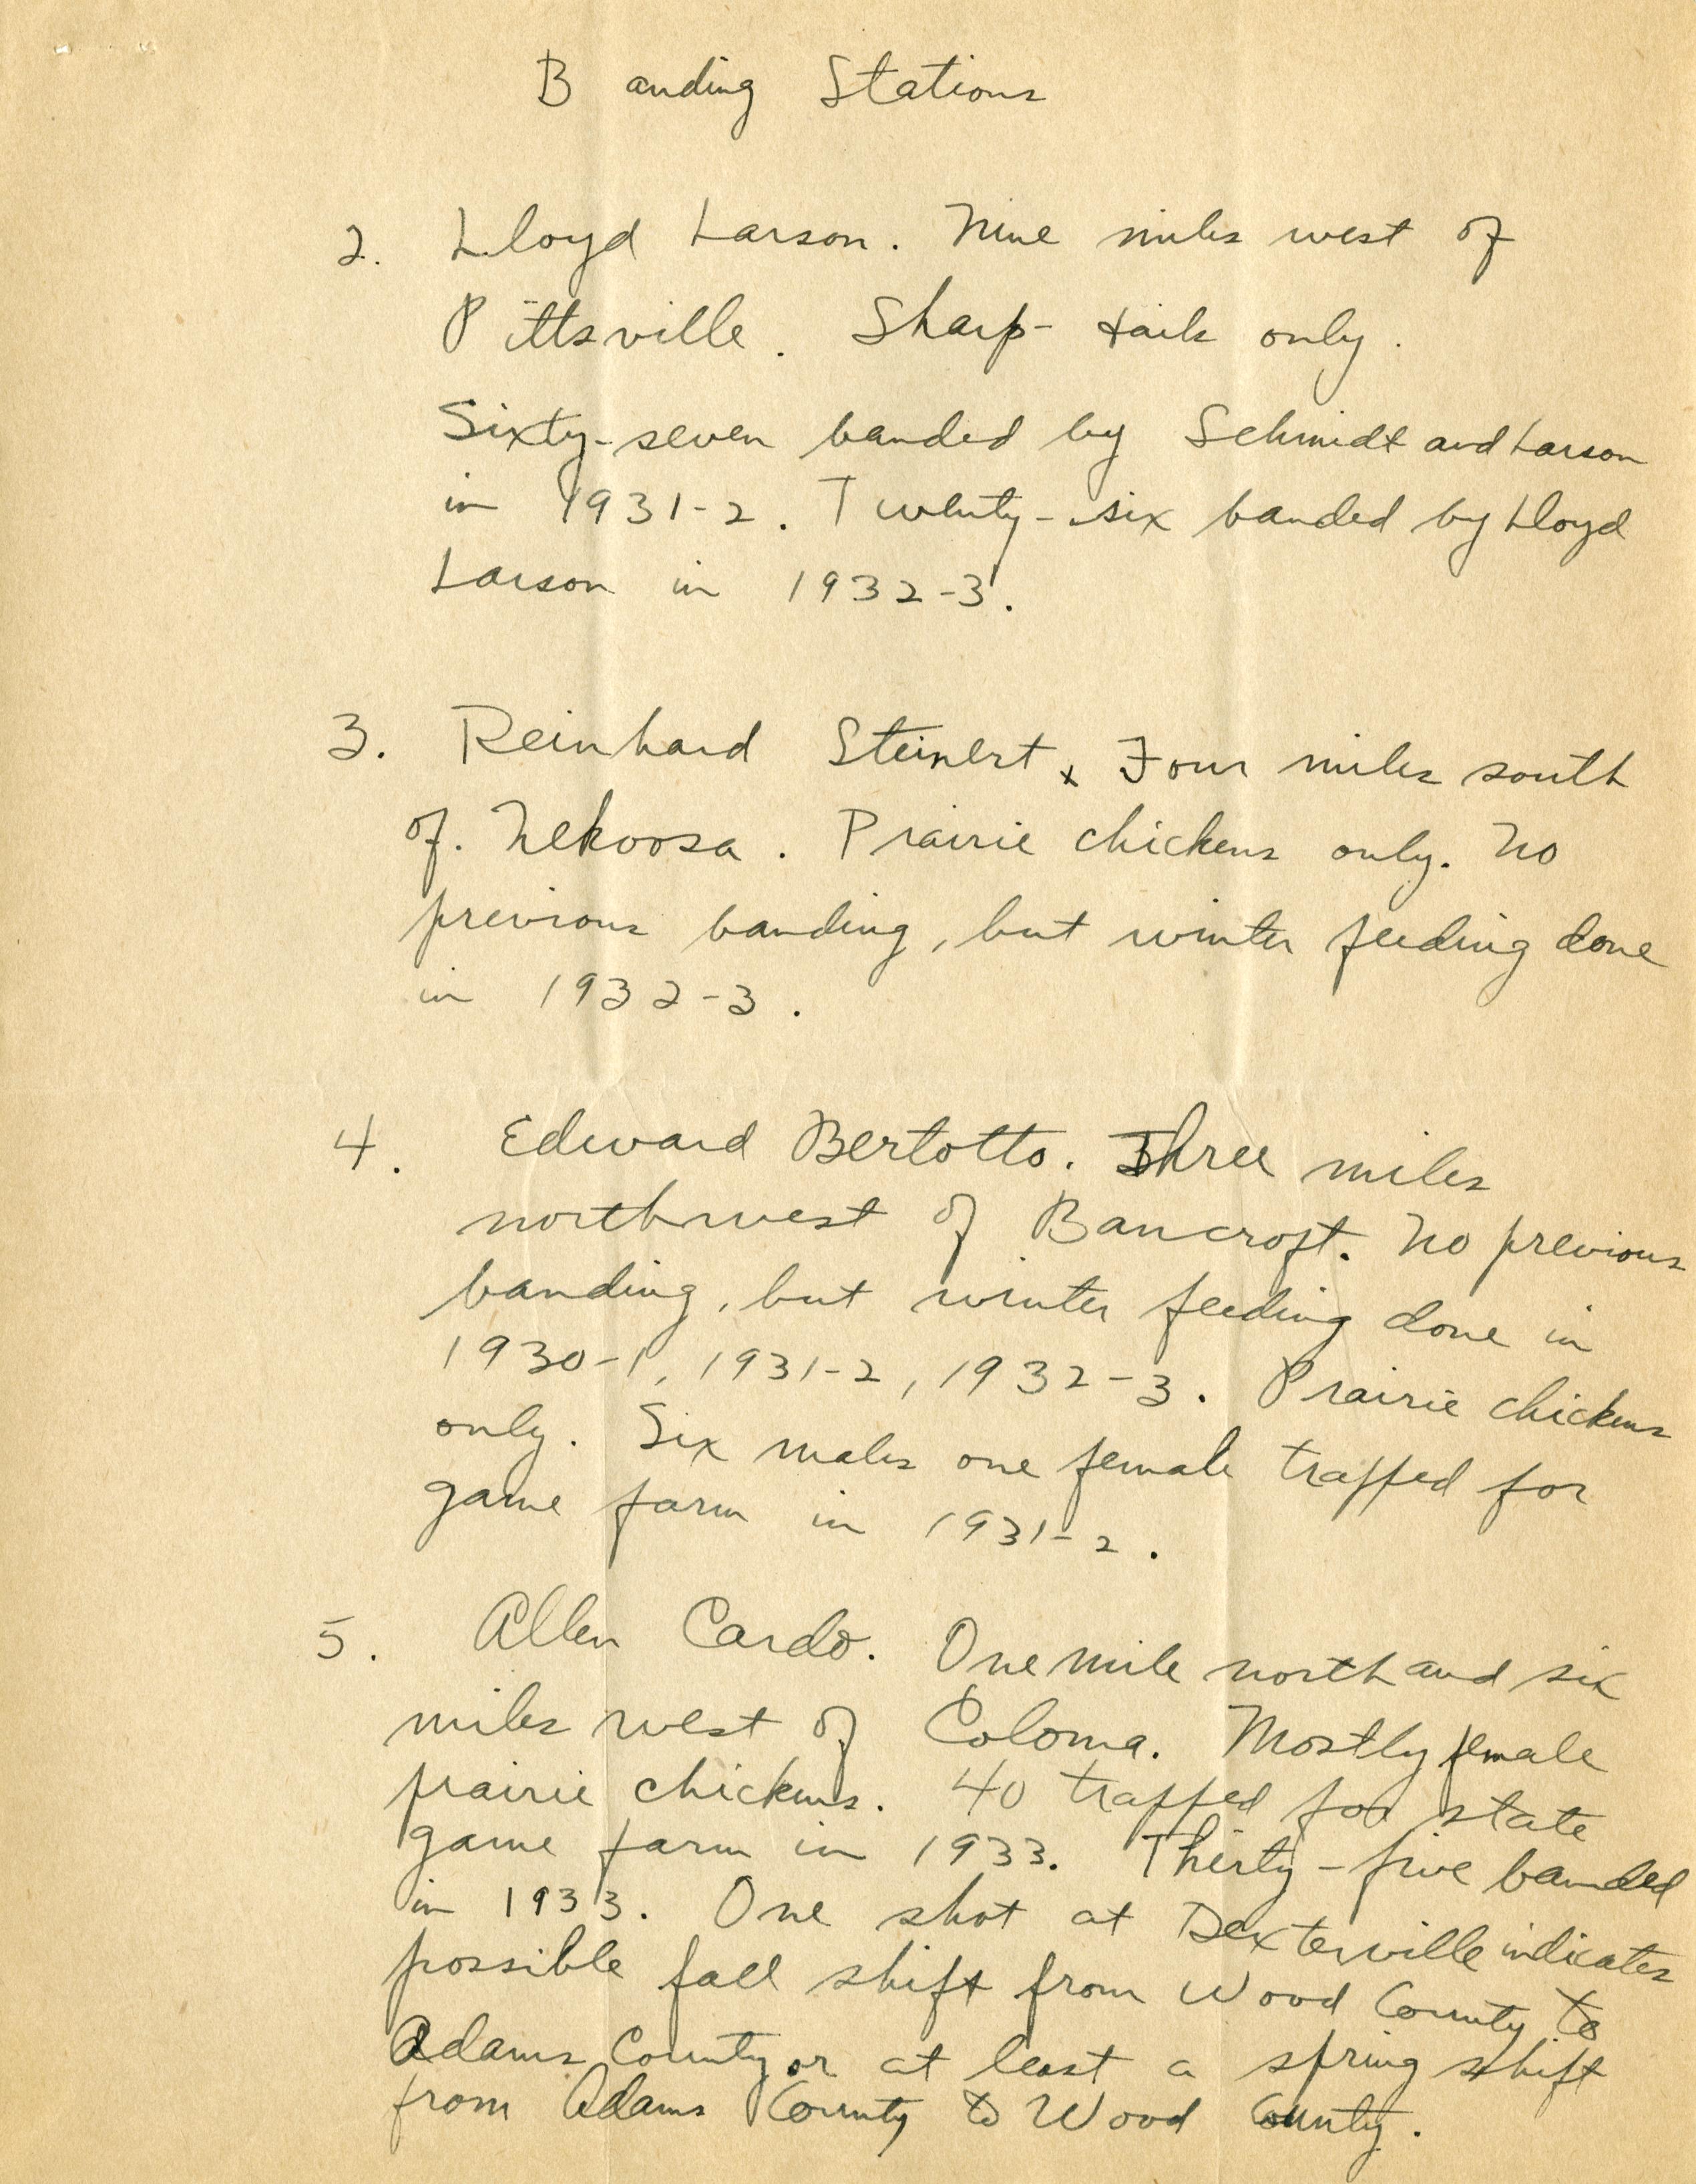 Banding Stations
2. Lloyd Larson. Nine miles west of
Pittsville. Sharp-tails only.
Sixty-seven banded by Schmidt and Larson
in 1931-2. Twenty-six banded by Lloyd
Larson in 1932-3.
3. Reinhard Steinert. Four miles south
of. Nekoosa. Prairie chickens only. No
previous banding, but winter feeding done
in 1932-3.
4. Edward Bertotto. Three miles
northwest of Bancroft. No previous
banding, but winter feeding done in
1930-1, 1931-2, 1932-3. Prairie chickens
only. Six males one female trapped for
game farm in 1931-2.
5. Allen Cardo. One mile north and six
miles west of Coloma. Mostly female
prairie chickens. 40 trapped for state
game farm in 1933. Thirty-five banded
in 1933. One shot at Dexterville indicates
possible fall shift from Wood County to
Adams County or at least a spring shift
from Adams County to Wood County.